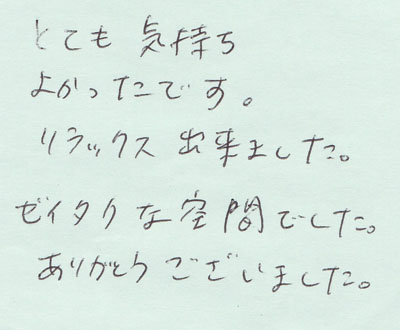 とても 気持ち
よかったです。
リラックス 出来ました。
ゼイタクな空間でした。
ありがとうございました。